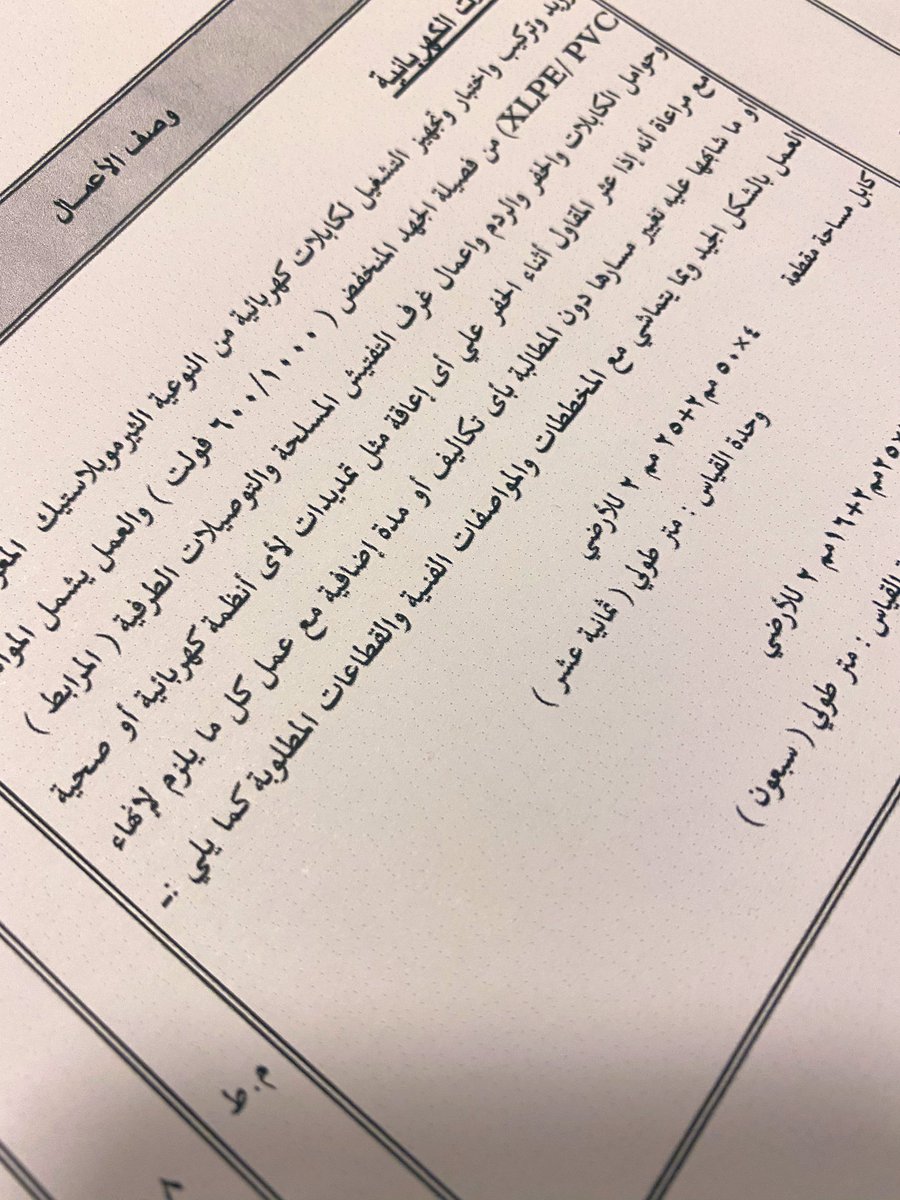 وصف الأعمال
الكهربائية
وتركيب واختبار وتجهيز التشغيل لكابلات كهربائية من النوعية الثيرموبلاستيك
(XLPE/ PVC) من فصيلة الجهد المنخفض ( ٦٠٠/١٠٠٠ فولت ) والعمل يشمل
وحوامل الكابلات والحفر والردم واعمال غرف التفتيش المسلحة والتوصيلات الطرفية ( المرابط )
مع مراعاة أنه إذا عثر المقاول أثناء الحفر علي أى إعاقة مثل تمديدات لأى أنظمة كهربائية أو صحية
أو ما شابهها عليه تغيير مسارها دون المطالبة بأى تكاليف أو مدة إضافية مع عمل كل ما يلزم لإنهاء
العمل بالشكل الجيد وبما يتماشي مع المخططات والمواصفات الفنية والقطاعات المطلوبة كما يلي :-
كابل مساحة مقطعة
٤×٥٠ مم٢+٢٥ مم ٢ للأرضي
وحدة القياس : متر طولي ( ثمانية عشر )
٢٥مم٢+١٦مم ٢ للأرضي
القياس : متر طولي ( سبعون )
م.ط